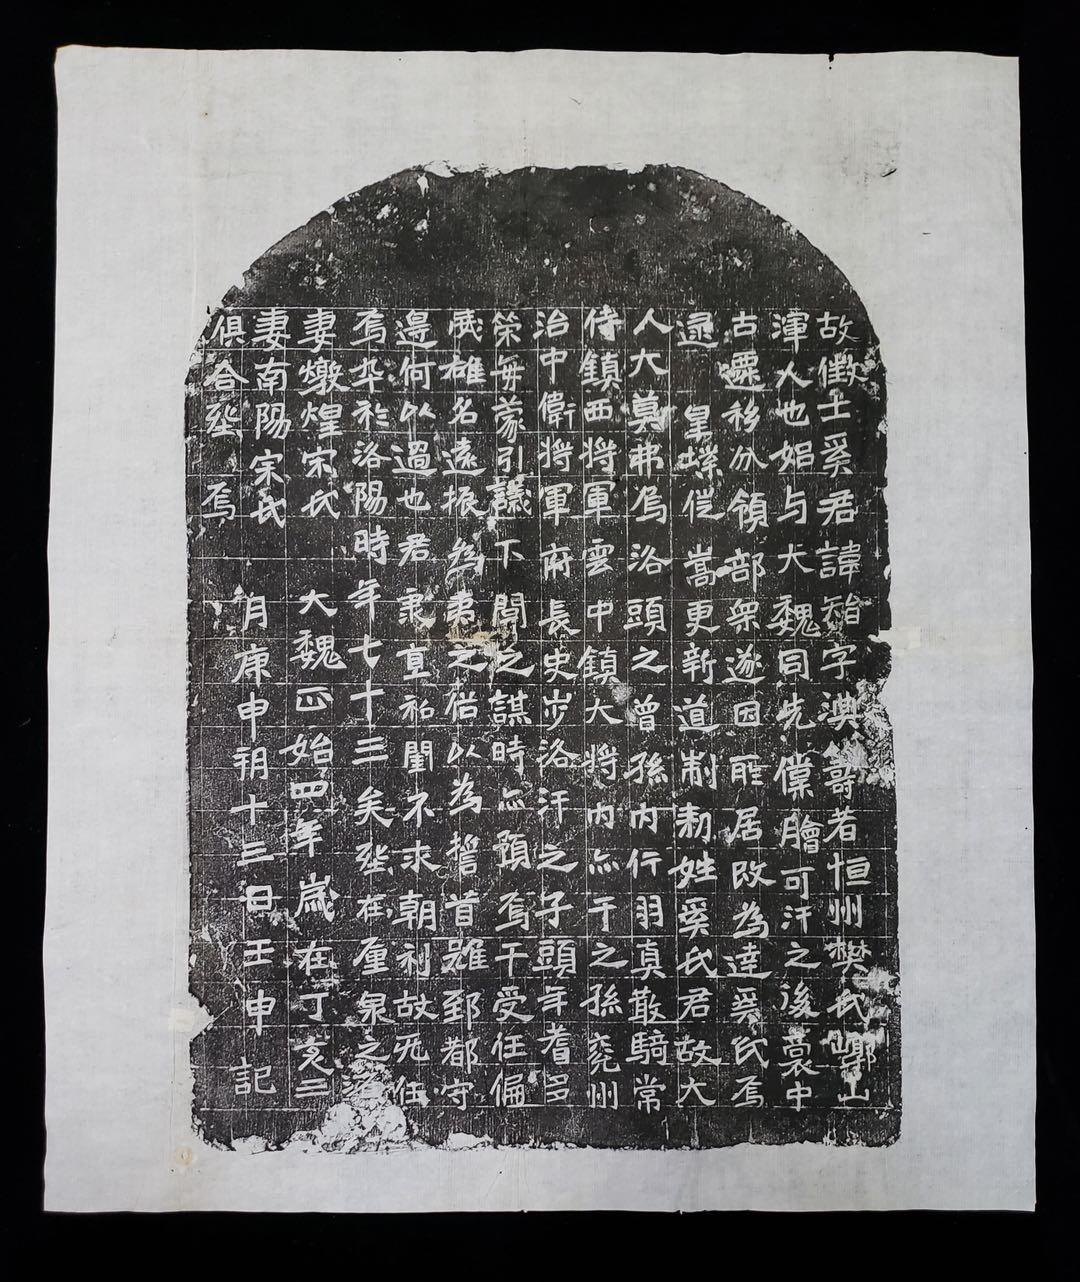 故徵士奚君諱智字淟籌者恒州樊氏崞山
渾人也始与大魏同先僕膾可汗之後裔中
古遷移分領部衆遂因所居改為達奚氏焉
逮 皇業徙嵩更新道制勑姓奚氏君故大
人大莫弗烏洛頭之曾孫内行羽真散騎常
侍鎮西將軍雲中鎮大將内亦干之孫兗州
治中衛將軍府長史步洛汗之子頭年耆多
策毎蒙引議下關之謀時亦預焉干受任偏
威雄名遠振為夷之俗以為誓首雖郅都守
邊何以過也君秉直私閨不求朝利故无任
焉卒於洛陽時年七十三矣塟在廛泉之源
妻燉煌宋氏 大魏正始四年歲在丁亥三
妻南陽宗氏 月庚申朔十三日壬申記
俱合塟焉